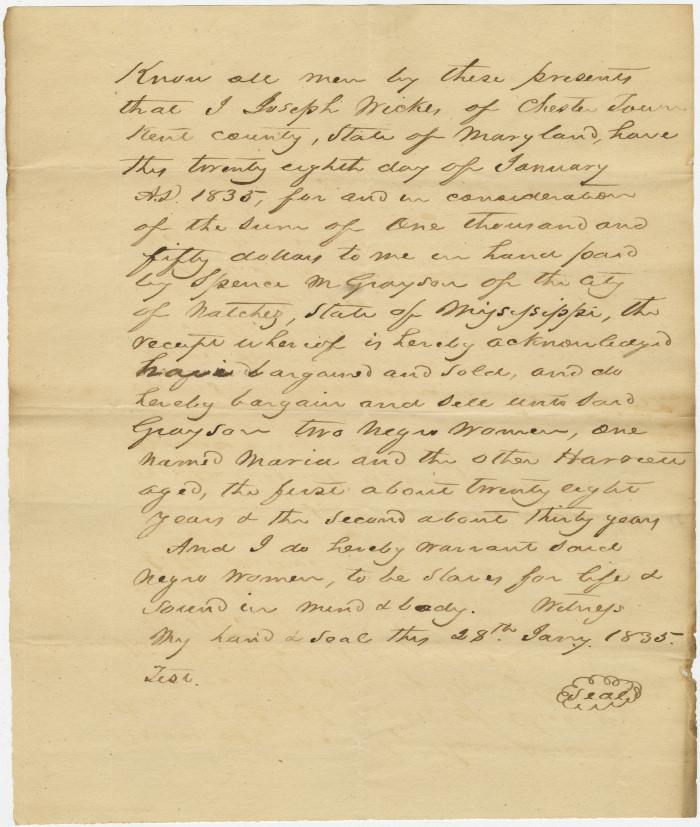 Know all men by these presents
that I Joseph Wickes of Chester Town
Kent county, State of Maryland, have
this twenty eighth day of January
A.D. 1835, for and in consideration
of the sum of One thousand and
fifty dollars to me in hand paid
by Spence M Grayson of the city
of Natchez, State of Mississippi, the
receipt whereof is hereby acknowledged
have bargained and sold, and do
hereby bargain and sell unto said
Grayson two Negro Women, One
named Maria and the other Harriett
aged, the first about twenty eight
years & the second about thirty years
And I do hereby warrant said
Negro Women, to be slaves for life &
sound in mind & body. Witness
My hand & seal this 28th. Jany. 1835.
Test.
Seal